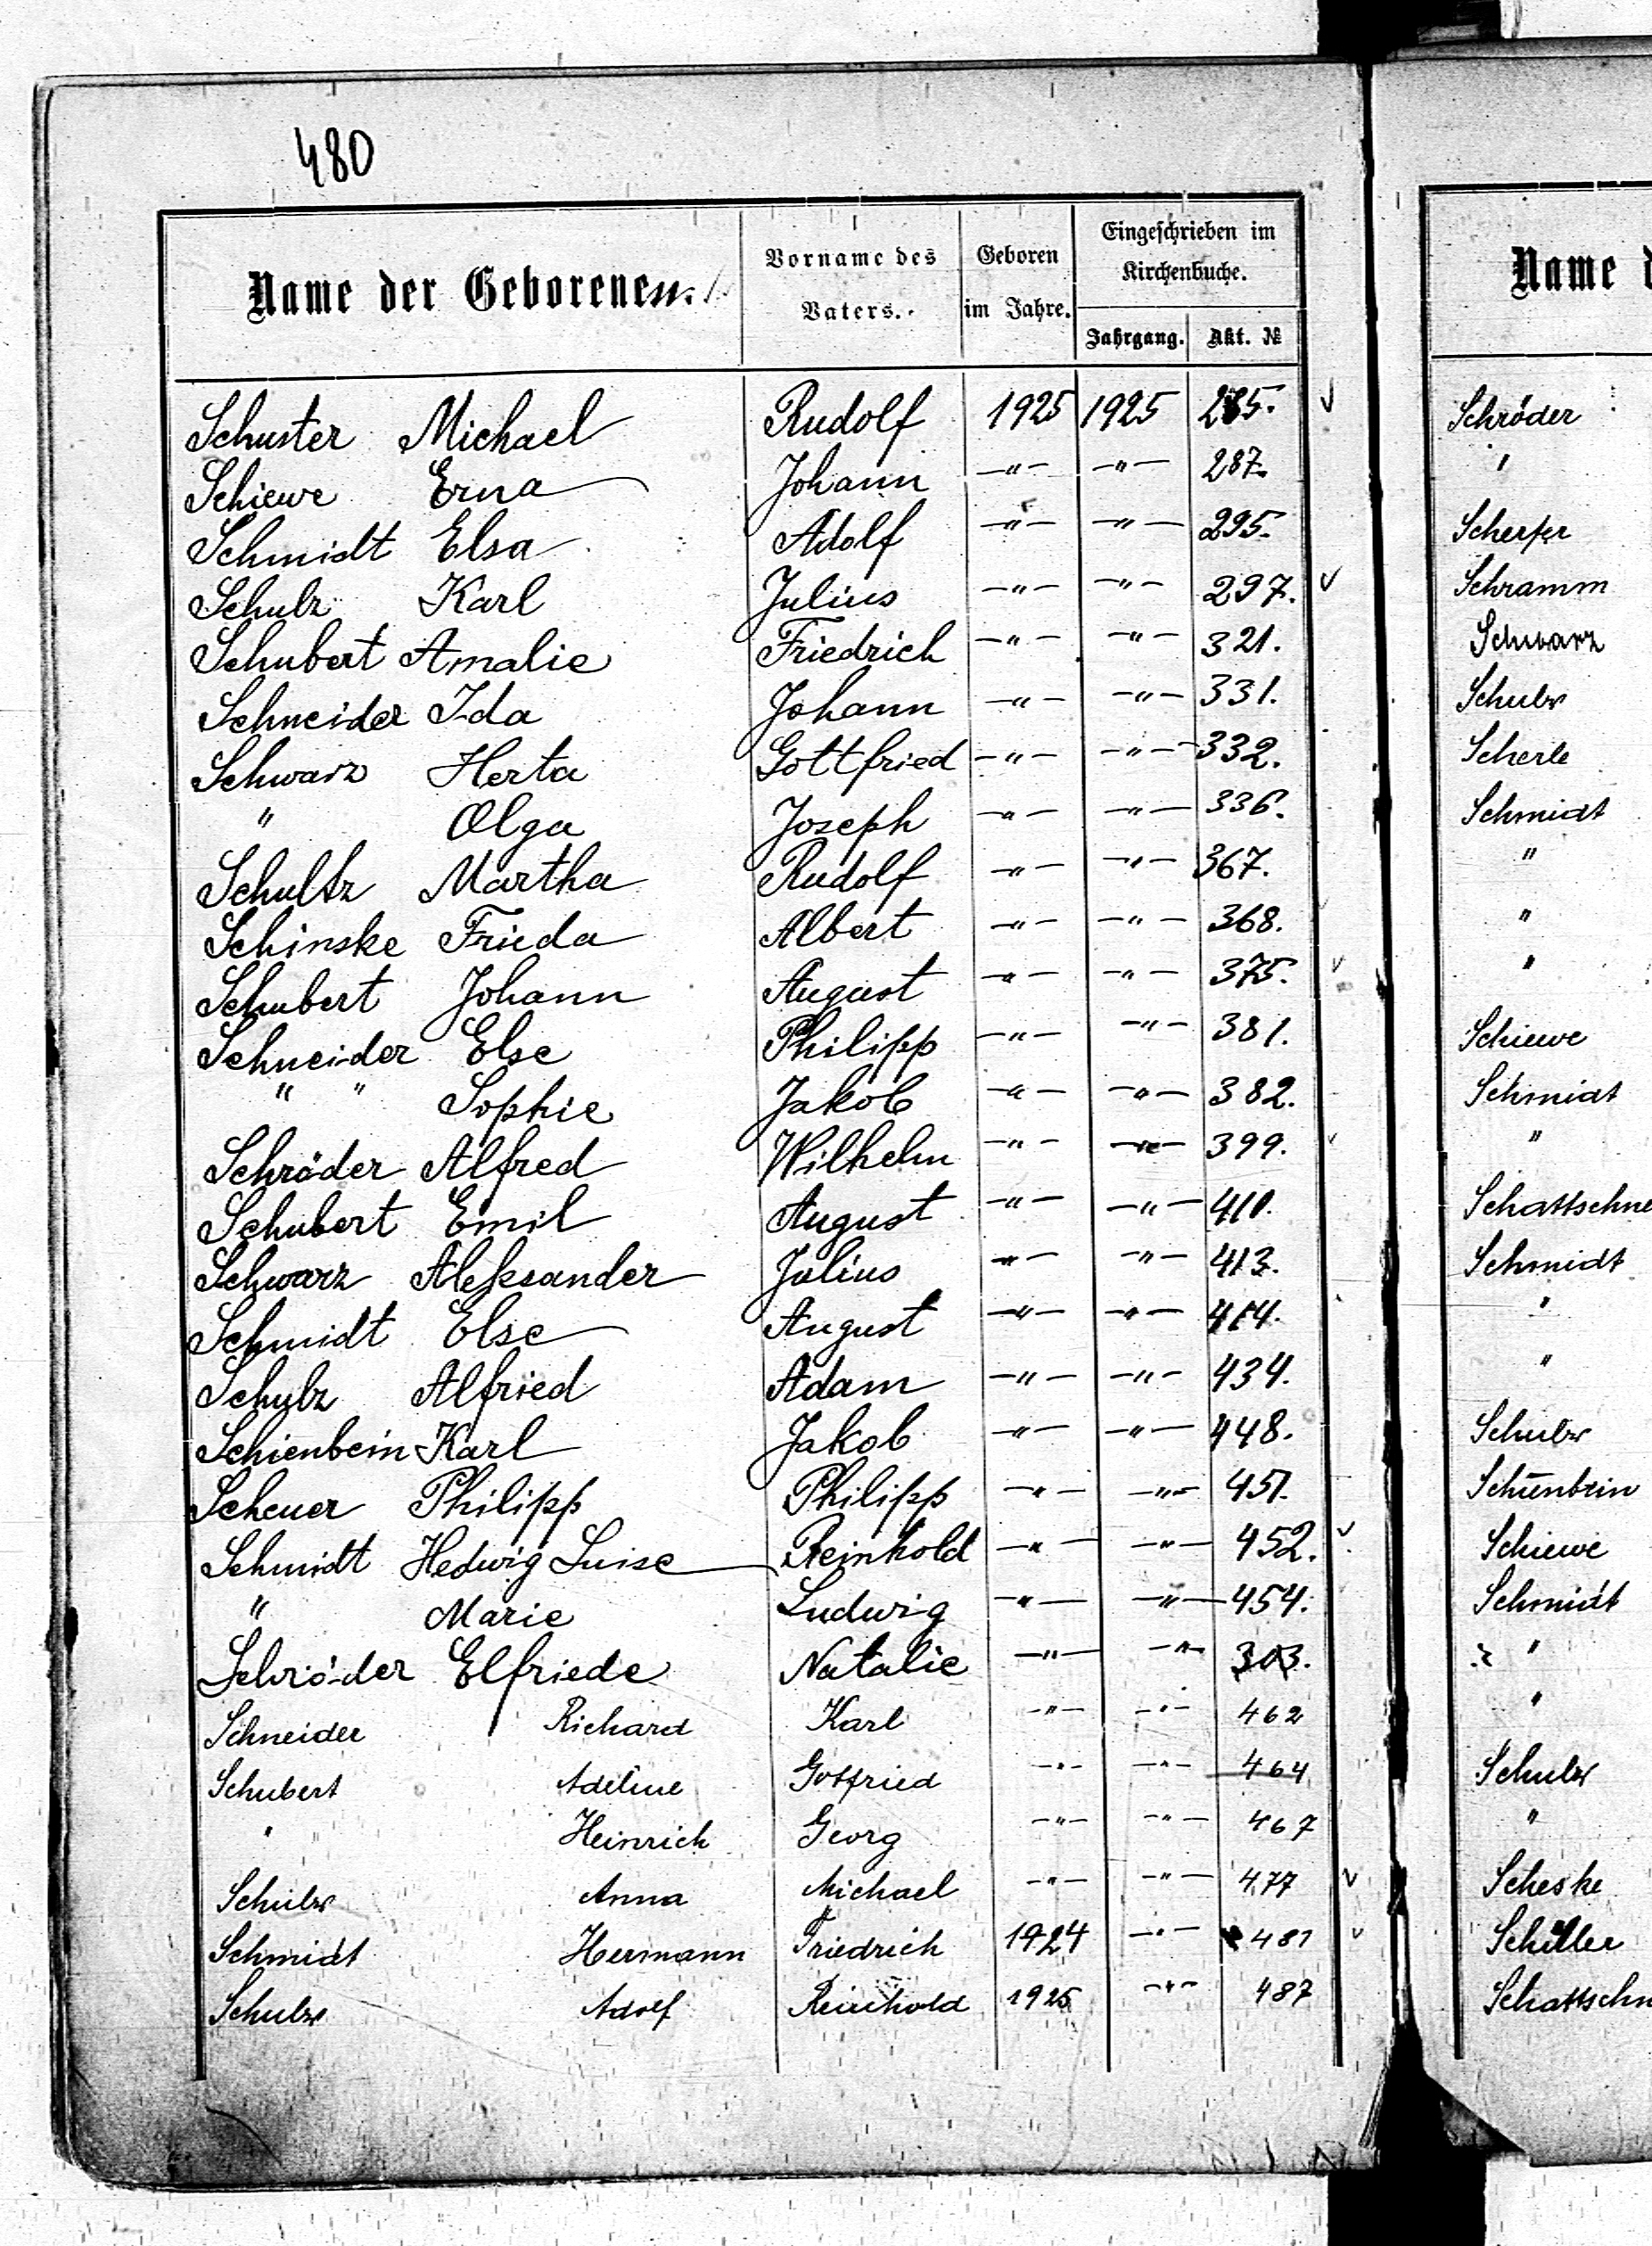 480
Name der Geborenen.
Vorname des Vaters.
Geboren im Jahre.
Eingeschrieben im Kirchenbuche.
Jahrgang. Akt. №
Schuster Michael Rudolf 1925 1925 285. ✓
Schiewe Erna Johann —"— —"— 287.
Schmidt Elsa Adolf —"— —"— 295.
Schulz Karl Julius —"— —"— 297. ✓
Schubert Amalie Friedrich —"— —"— 321.
Schneider Ida Johann —"— —"— 331.
Schwarz Herta Gottfried —"— —"— 332.
" Olga Joseph —"— —"— 336.
Schultz Martha Rudolf —"— —"— 367.
Schinske Frieda Albert —"— —"— 368.
Schubert Johann August —"— —"— 375. ✓
Schneider Else Philipp —"— —"— 381.
" " Sophie Jakob —"— —"— 382.
Schröder Alfred Wilhelm —"— —"— 399. ✓
Schubert Emil August —"— —"—
Schwarz Aleksander Julius —"— —"— 413.
Schmidt Else August —"— —"— 414.
Schulz Alfried Adam —"— —"— 434.
Schienbein Karl Jakob —"— —"— 448.
Scheuer Philipp Philipp —"— —"— 451.
Schmidt Hedwig Luise Reinhold —"— —"— 452. ✓
" Marie Ludwig —"— —"— 454.
Schröder Elfriede Natalie —"— —"— 303.
Schneider Richard Karl —"— —"— 462
Schubert Adeline Gotfried —"— —"— 464
" Heinrich Georg —"— —"— 467
Schulz Anna Michael —"— —"— 477 ✓
Schmidt Hermann Friedrich 1924 —"— 481 ✓
Schulz Adolf Reinhold 1925 —"— 487
Name d
Schröder
"
Scherfer
Schramm
Schwarz
Schulz
Scherle
Schmidt
"
"
"
Schiewe
Schmidt
"
Schattschne
Schmidt
"
"
Schulz
Schienbein
Schiewe
Schmidt
"
"
Schulz
"
Scheske
Schiller
Schattschn